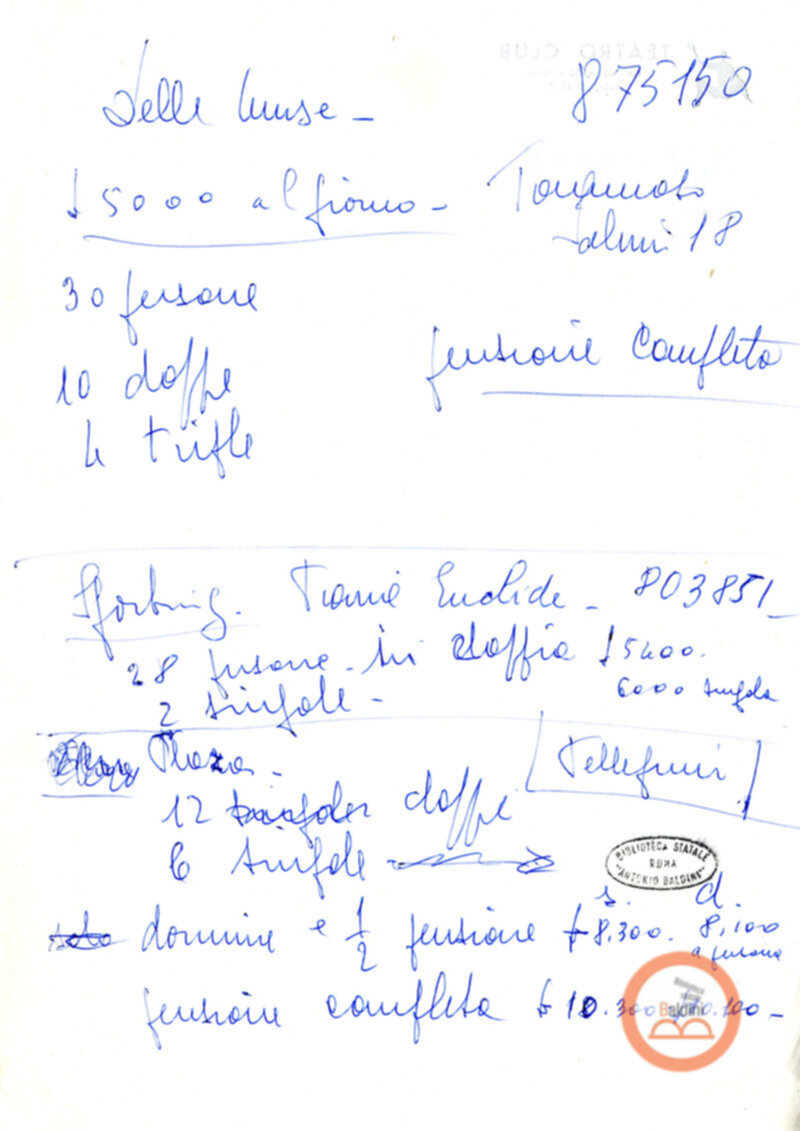 TEATRO CLUB
Delle Muse - 875150
£ 5000 al giorno - Tommaso
Salvini 18
30 persone
pensione completa
10 doppe
4 triple
Sporting. Piazza Euclide - 803851 -
28 persone - in doppia £ 5400.
2 singole - 6000 singola
Plaza -
Pellegrini
12 singole doppi
6 singole
BIBLIOTECA STATALE
ROMA
"ANTONIO BALDINI"
s. d.
solo dormire e 1/2 pensione £ 8.300. 8,100
a persona
pensione completa £ 10.300 10.100 -
Biblioteca
Baldini